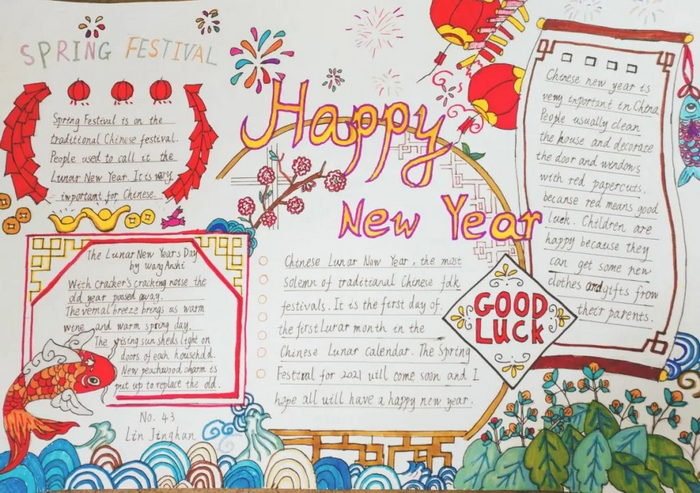 SPRING FESTIVAL
Spring Festival is on the
traditional Chinese festival.
People used to call it the
Lunar New Year. It is very
important for Chinese.
Happy
New Year
The Lunar New Year's Day
by Wang Anshi
With Cracker's cracking noise the
old year passed away.
The vernal breeze brings us warm
wine and warm spring day.
The rising sun sheds light on
doors of eah househild.
New peachwood charm is
put up to replace the old.
No. 43
Lin Jinghan
Chinese Lunar New Year, the most
solemn of traditional Chinese folk
festivals. It is the first day of
the first lurar month in the
Chinese Lunar calendar. The Spring
Festival for 2021 will come soon and I
hope all will have a happy new year.
GOOD
LUCK
Chinese new year is
very important in China
People usually clean
the house and decorate
the door and windows
with red papercuts,
because red means good
luck. Children are
happy because they
can get some new
clothes and gifts from
their parents.